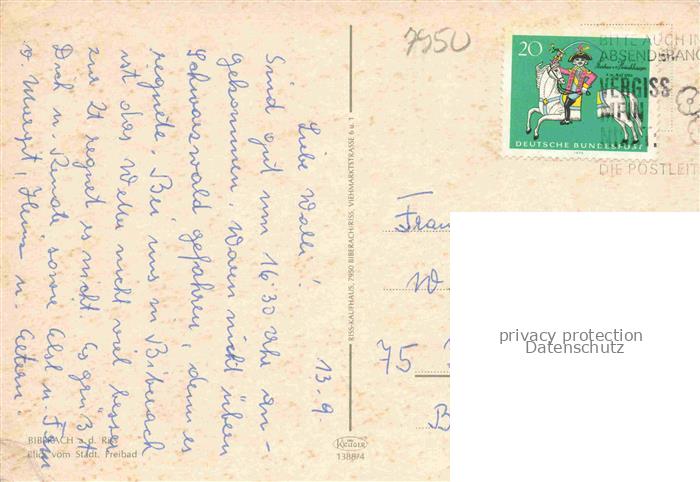 13.9.
Liebe Walli!
Sind gut um 16.30 Uhr an-
gekommen. Waren nicht übern
Schwarzwald gefahren, denn es
regnete. Bei uns in Biberach
ist das Wetter nicht viel besser
zur Zt regnet es nicht. Es grüßt
Dich u. Renate, sowie u. Fam
v. Margit, Heinz u. Eltern.
BIBERACH a. d. Riß
Blick vom Städt. Freibad
RISS-KAUFHAUS, 7950 BIBERACH/RISS, VIEHMARKTSTRASSE 6 u. 1
KRÜGER
1388/4
7950
20
DEUTSCHE BUNDESPOST
BITTE AUCH IN
ABSENDERANG
VERGISS
MEIN
NICHT:
DIE POSTLEIT
Frau
W
75
B
privacy protection
Datenschutz